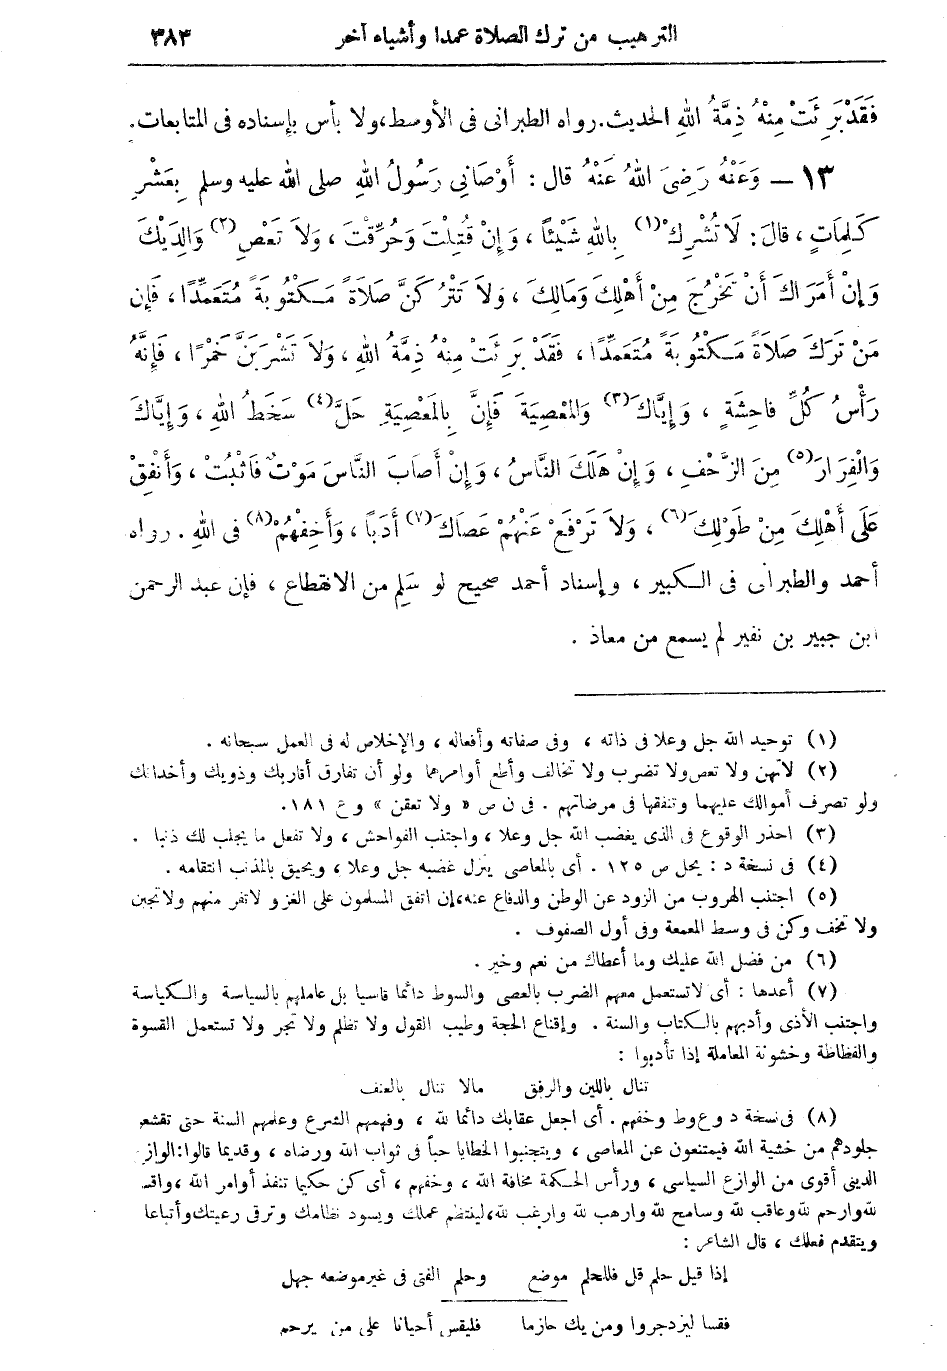 الترهيب من ترك الصلاة عمدا وأشياء آخر ٣٨٣
فَقَدْ بَرِئَتْ مِنْهُ ذِمَّةُ اللهِ الحديث. رواه الطبرانى فى الأوسط، ولا بأس بإسناده فى المتابعات.
١٣ – وَعَنْهُ رَضِىَ اللهُ عَنْهُ قال : أَوْصَانِي رَسُولُ اللهِ صلى الله عليه وسلم بِعَشْرِ
كَلِمَاتٍ ، قالَ : لَا تُشْرِكْ(١) بِاللهِ شَيْئًا ، وَإِنْ قُتِلْتَ وَحُرِّقْتَ ، وَلاَ تَعْصِ(٢) وَالِدَيْكَ
وَإِنْ أَمَرَاكَ أَنْ تَخْرُجَ مِنْ أَهْلِكَ وَمَالِكَ ، وَلاَ تَتْرُكَنَّ صَلاَةً مَكْتُوبَةً مُتَعَمِّدًا ، فَإِن
مَنْ تَرَكَ صَلاَةً مَكْتُوبَةً مُتَعَمِّدًا ، فَقَدْ بَرِئَتْ مِنْهُ ذِمَّةُ اللهِ ، وَلاَ تَشْرَبَنَّ خَمْرًا ، فَإِنَّهُ
رَأْسُ كُلِّ فاحِشَةٍ ، وَإِيَّاكَ(٣) وَالمَعْصِيَةَ فَإِنَّ بِالمَعْصِيَةِ حَلَّ(٤) سَخَطُ اللهِ ، وَإِيَّاكَ
وَالْفِرَارَ(٥) مِنَ الزَّحْفِ ، وَإِنْ هَلَكَ النَّاسُ ، وَإِنْ أَصَابَ النَّاسَ مَوْتٌ فَاثْبُتْ ، وَأَنْفِقْ
عَلَى أَهْلِكَ مِنْ طَوْلِكَ(٦) ، وَلاَ تَرْفَعْ عَنْهُمْ عَصَاكَ(٧) أَدَبًا ، وَأَخِفْهُمْ(٨) فى اللهِ . رواه
أحمد والطبرانى فى الكبير ، وإسناد أحمد صحيح لو سَلِمَ من الانقطاع ، فإن عبد الرحمن
ابن جبير بن نفير لم يسمع من معاذ .
(١) توحيد الله جل وعلا فى ذاته ، وفى صفاته وأفعاله ، والإخلاص له فى العمل سبحانه .
(٢) لاتهن ولا تعص ولا تضرب ولا تخالف وأطع أوامرهما ولو أن تفارق أقاربك وذويك وأخدانك
ولو تصرف أموالك عليهما وتنفقها فى مرضاتهم . فى ن ص « ولا تعقن » و ع ١٨١.
(٣) احذر الوقوع فى الذى يغضب الله جل وعلا ، واجتنب الفواحش ، ولا تفعل ما يجلب لك ذنبا .
(٤) فى نسخة د : يحل ص ١٢٥ . أى بالمعاصى ينزل غضبه جل وعلا ، ويحيق بالمذنب انتقامه .
(٥) اجتنب الهروب من الزود عن الوطن والدفاع عنه، إن اتفق المسلمون على الغزو لاتفر منهم ولا تجبن
ولا تخف وكن فى وسط المعمعة وفى أول الصفوف .
(٦) من فضل الله عليك وما أعطاك من نعم وخير .
(٧) أعدها : أى لاتستعمل معهم الضرب بالعصى والسوط دائما قاسيا بل عاملهم بالسياسة والكياسة
واجتنب الأذى وأدبهم بالكتاب والسنة . وإقناع الحجة وطيب القول ولا تظلم ولا تجر ولا تستعمل القسوة
والفظاظة وخشونة المعاملة إذا تأدبوا :
تنال باللين والرفق مالا تنال بالعنف
(٨) فى نسخة د و ع وط وخفهم . أى اجعل عقابك دائما لله ، وفهمهم الشرع وعلمهم السنة حتى تقشعر
جلودهم من خشية الله فيمتنعون عن المعاصى ، ويتجنبوا الخطايا حباً فى ثواب الله ورضاه ، وقديما قالوا: الواز
الدينى أقوى من الوازع السياسى ، ورأس الحكمة مخافة الله ، وخفهم ، أى كن حكيما تنفذ أوامر الله ، واقس
لله وارحم لله وعاقب لله وسامح لله وارهب لله وارغب لله، لينتظم عملك ويسود نظامك وترقى رعيتك وأتباعا
ويتقدم فعلك ، قال الشاعر :
إذا قيل حلم قل فللحلم موضع وحلم الفتى فى غير موضعه جهل
فقسا ليزدجروا ومن يك حازما فليقس أحيانا على من يرحم